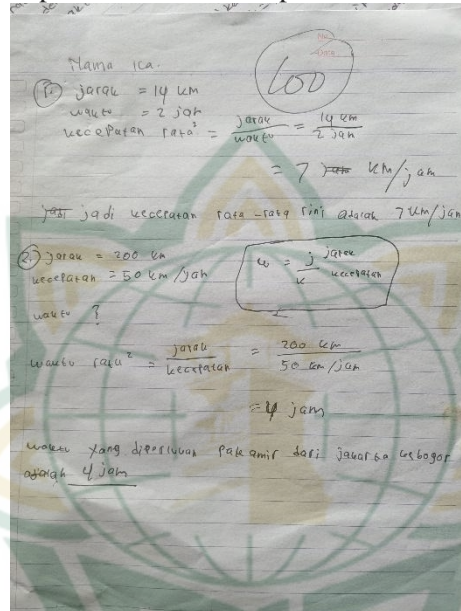 Nama Ica.
100
1. jarak = 14 km
waktu = 2 jam
kecepatan rata² = jarak / waktu = 14 km / 2 jam
= 7 km/jam
jadi kecepatan rata-rata rini adalah 7 km/jam
2. jarak = 200 km
kecepatan = 50 km/jam
w = j / k jarak kecepatan
waktu ?
waktu rata² = jarak / kecepatan = 200 km / 50 km/jam
= 4 jam
waktu yang diperlukan pak amir dari jakarta ke bogor
adalah 4 jam